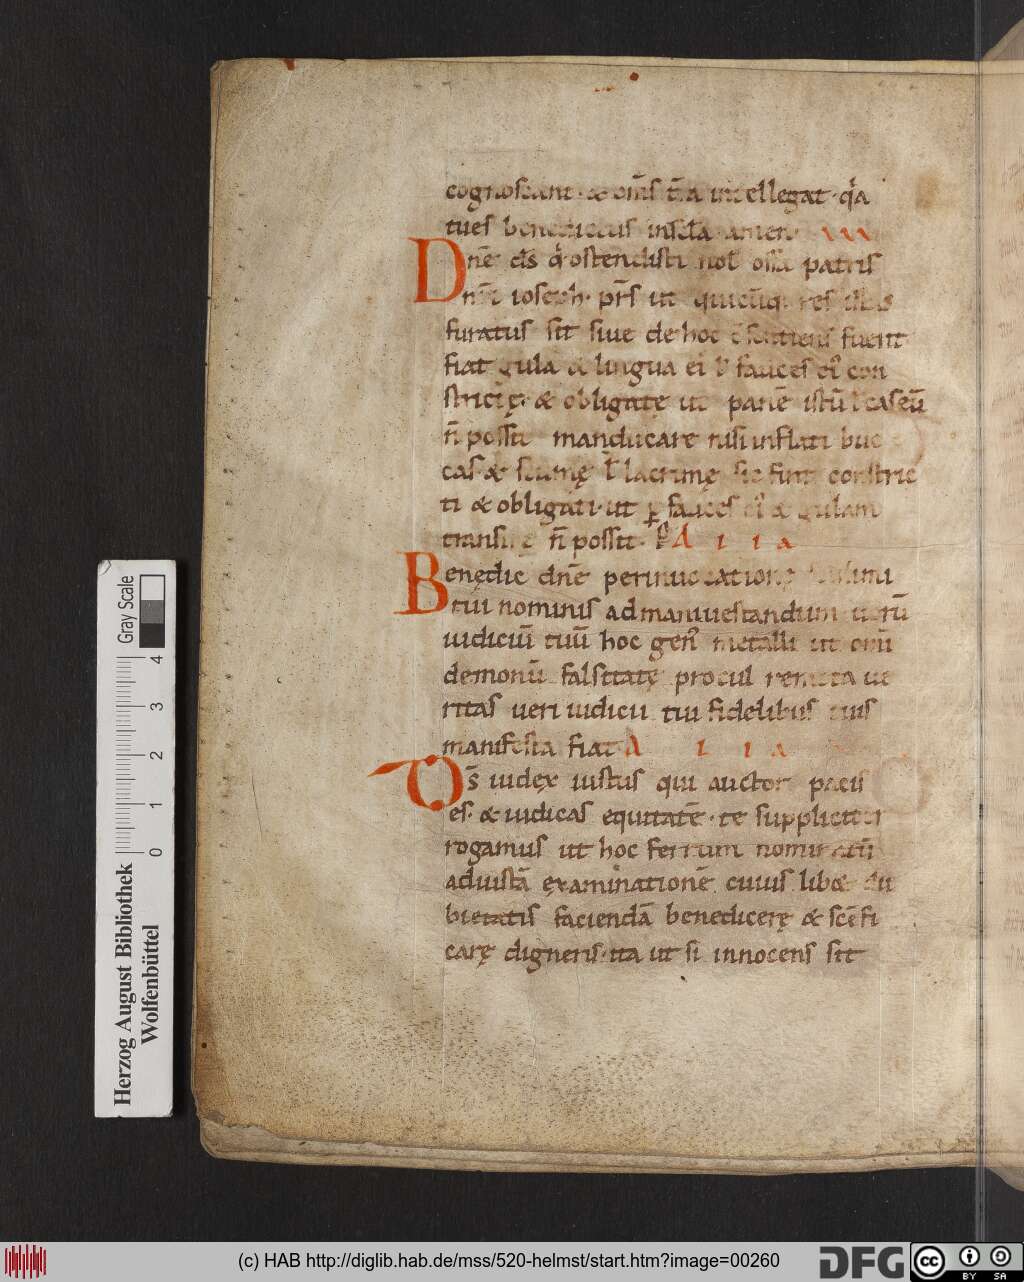 cognoscant · & om̄s t̄ra intellegat · q̇a
tu es benedictus in sc̄la amen ·
Dn̄e ds̄ q̇ ostendisti nob ossa patris
nr̄i ioseph · pr̄s ut quicūq; res illas
furatus sit siue de hoc c̄sentiens fuerit
fiat gula & lingua ei ł fauces ei con
strictę · & obligatę ut panē istū ł caseū
n̄ possit manducare nisi inflati buc
cas & scumę ł lacrimę sic sint constric
ti & obligati · ut ꝑ fauces ei & gulam
transire n̄ possit · Alia
Benędic dn̄e per inuocationē
tui nominis ad maniuestandum uerū
iudiciū tuū hoc gen᾽ metalli ut om̄i
demonū falsitatę procul remota ue
ritas ueri iudicii tui fidelibus tuis
manifesta fiat Alia
Ds̄ iudex iustus qui auctor pacis
es · & iudicas equitatē · te suppliciter
rogamus ut hoc ferrum nominatū
ad iustā ęxaminationē cuius lib& du
bietatis faciendā benedicerę & scēfi
carę digneris · ita ut si innocens sit
Gray Scale
4
3
2
1
0
Herzog August Bibliothek
Wolfenbüttel
(c) HAB http://diglib.hab.de/mss/520-helmst/start.htm?image=00260
DFG
cc
BY SA